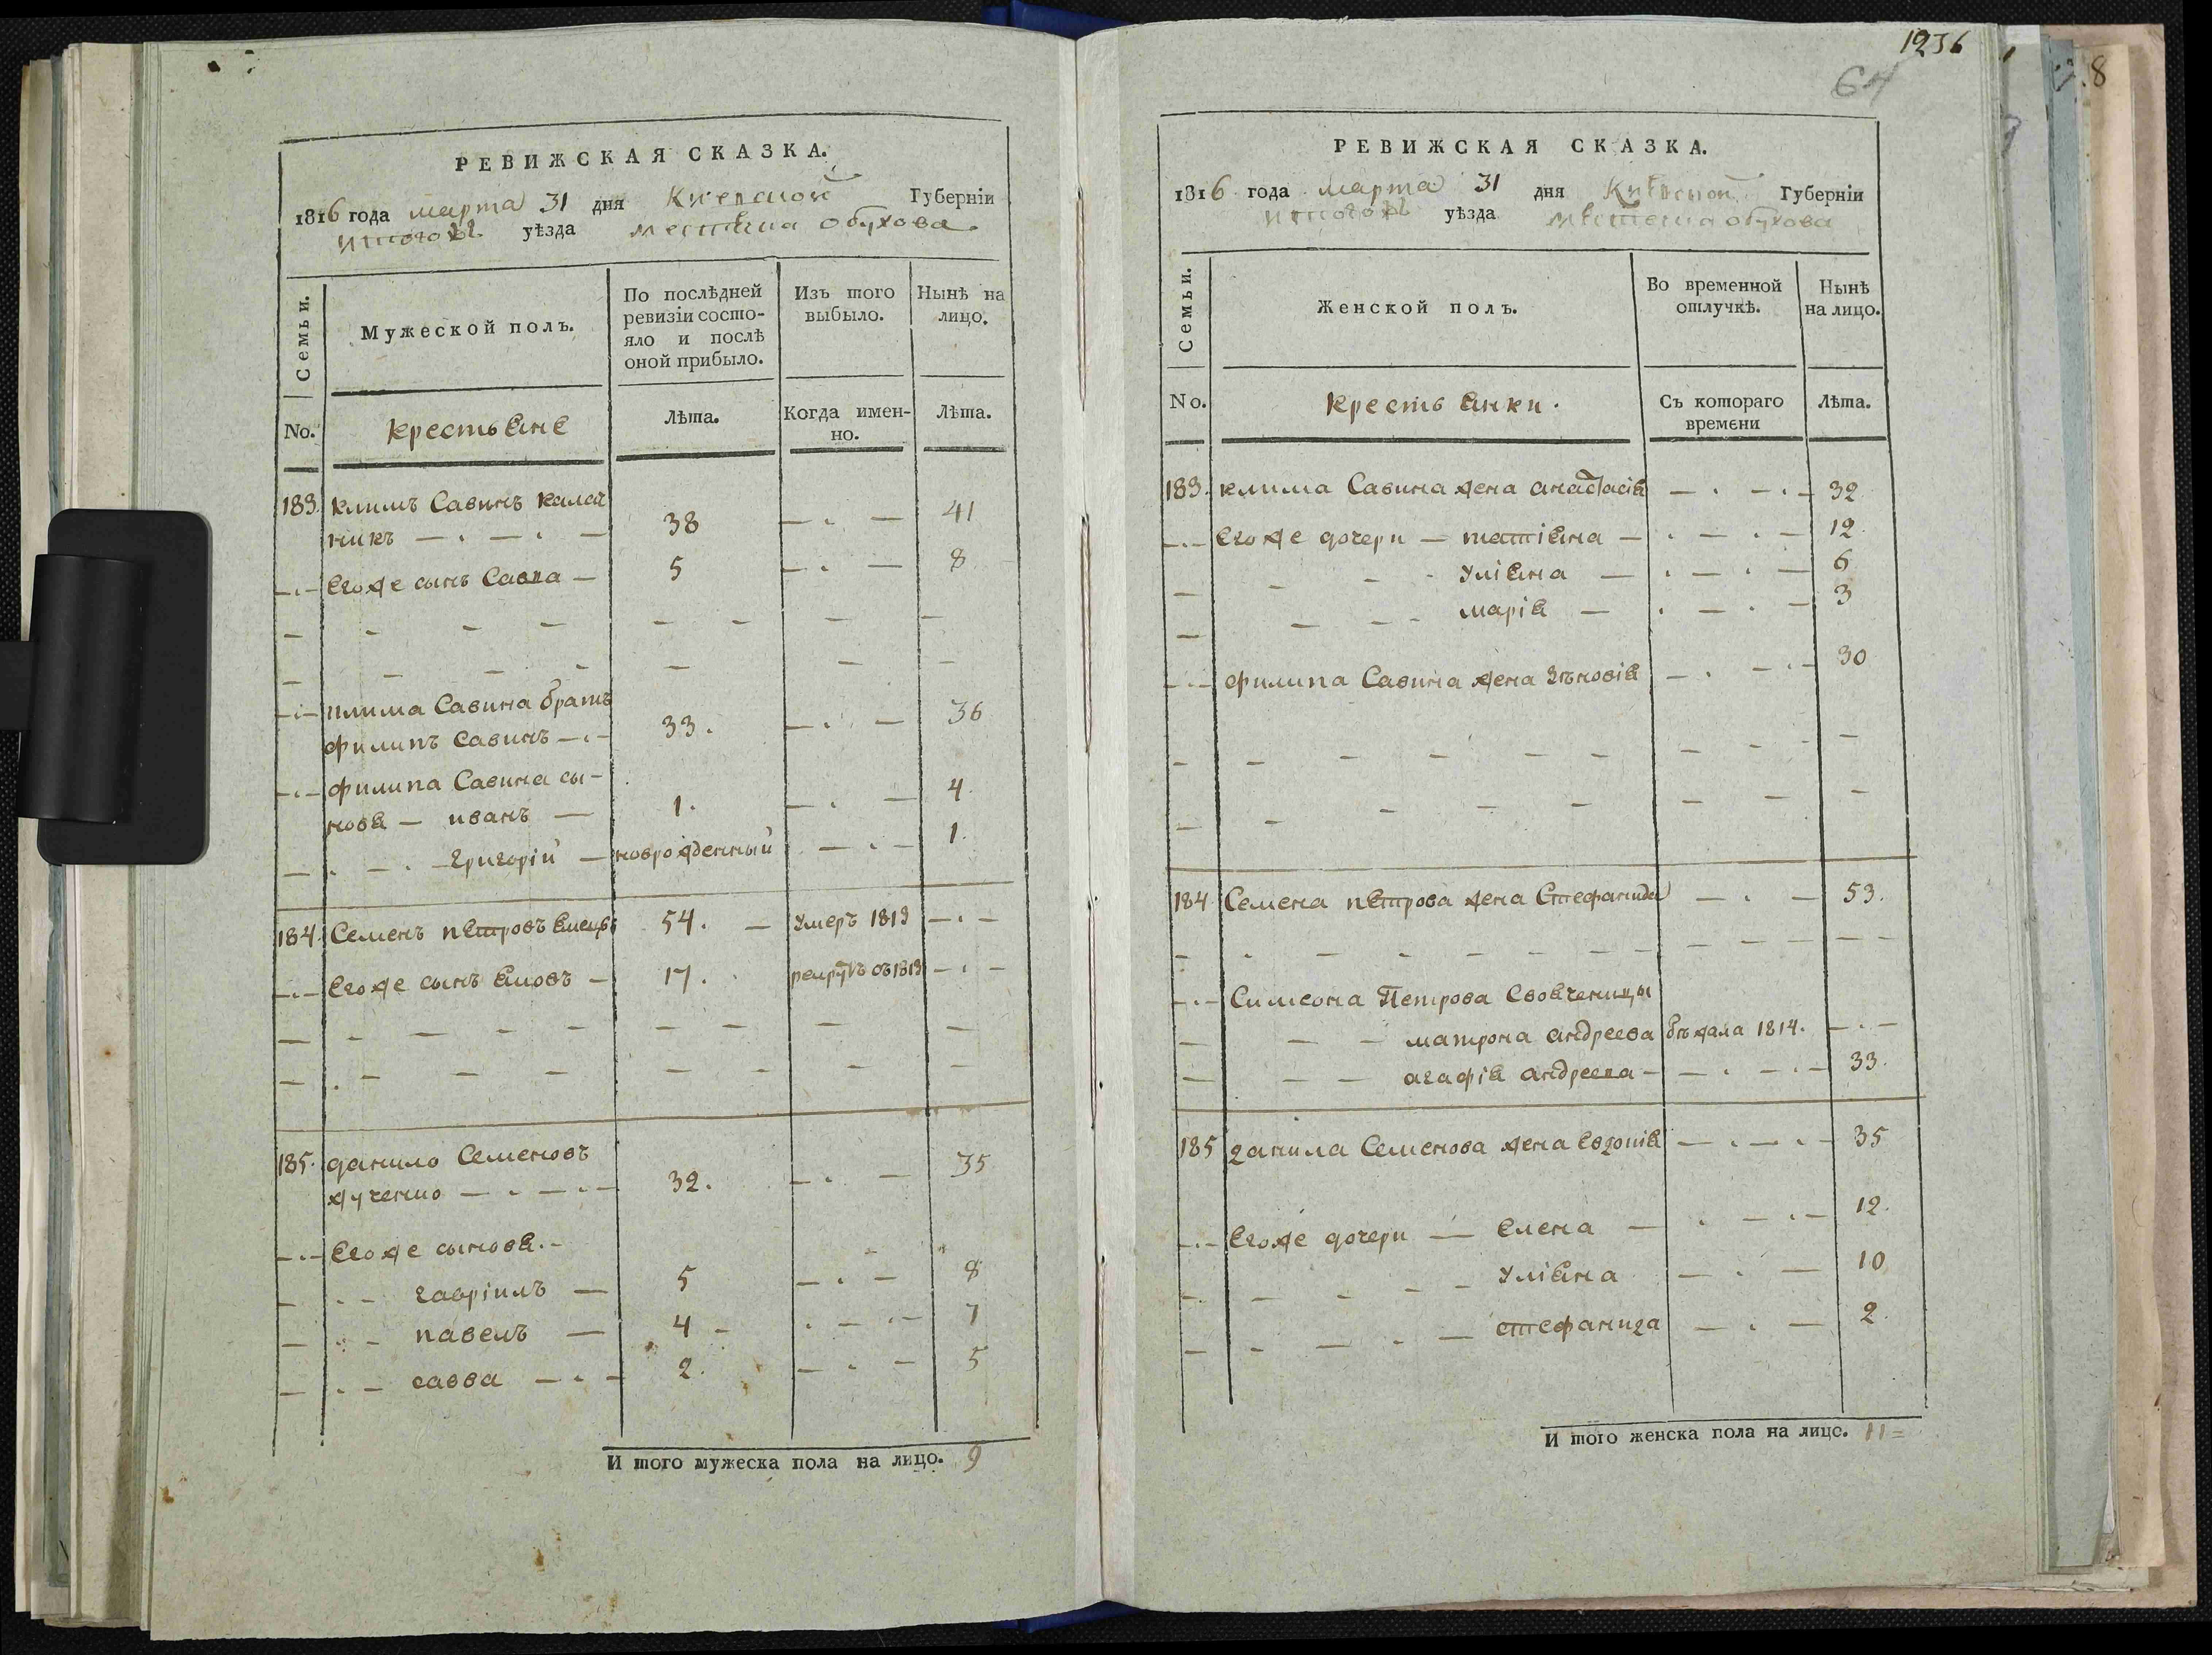 1236
64
8
РЕВИЖСКАЯ СКАЗКА.
1816 года марта 31 дня Киевской Губерніи
уѣзда местечка обухова
Семьи.
Мужеской полъ.
По послѣдней ревизіи состо-
яло и послѣ оной прибыло.
Изъ того выбыло.
Нынѣ на лицо.
No.
крестьяне
Лѣта.
Когда имен-
но.
Лѣта.
183. климъ Савинъ калач
никъ 38 41
Егоже сынъ Савва 5 8
клима Савина братъ
филипъ Савинъ 33. 36
филипа Савина сы-
новя иванъ 1. 4.
григорій новрожденный 1.
184. Семенъ петровъ 54. Умеръ 1813
Егоже сынъ яковъ 17. рекрутъ въ 1813
185. данило Семеновъ
32. 35
Егоже сыновя.
гавріилъ 5 8
павелъ 4 7
савва 2. 5
И того мужеска пола на лицо. 9
РЕВИЖСКАЯ СКАЗКА.
1816 года марта 31 дня Киевской Губерніи
уѣзда местечка обухова
Семьи.
Женской полъ.
Во временной
отлучкѣ.
Нынѣ
на лицо.
No.
крестьянки.
Съ котораго
времени
Лѣта.
183. клима Савина жена анастасія 32
Егоже дочери татіяна 12.
Уліяна 6
марія 3
филипа Савина жена Зѣновія 30
184. Семена петрова жена Стефанида 53.
Симеона Петрова Своячницы
матрона андреева бѣжала 1814.
агафія андреева 33.
185 данила Семенова жена Евдокія 35
Егоже дочери Елена 12.
Уліяна 10
стефанида 2.
И того женска пола на лицо. 11